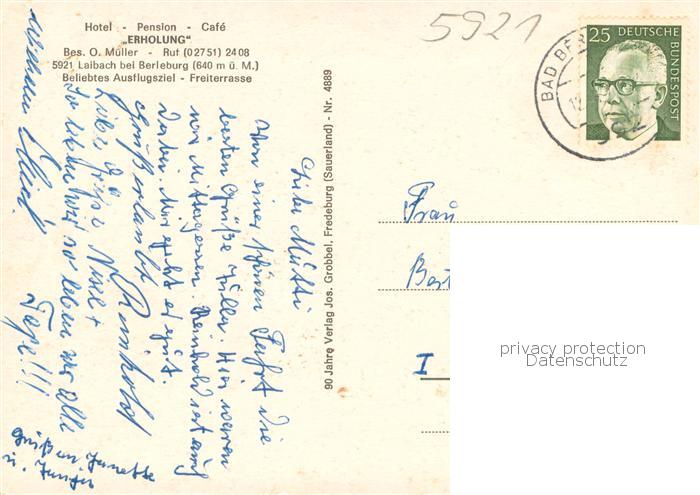 Hotel - Pension - Café
„ERHOLUNG"
Bes. O. Müller - Ruf (02751) 2408
5921 Laibach bei Berleburg (640 m ü. M.)
Beliebtes Ausflugsziel - Freiterrasse
5921
25 DEUTSCHE BUNDESPOST
BAD BER
90 Jahre Verlag Jos. Grobbel, Fredeburg (Sauerland) - Nr. 4889
Liebe Mutti
Von einer schönen Fahrt die
besten Grüße Hier waren
wir Mittagessen. Reinhold ist auch
dabei. Mir geht es gut.
Gruß Reinhold
So leben wir so leben wir alle
Tage!!!
Grüße Janette
u.
Frau
I
privacy protection
Datenschutz